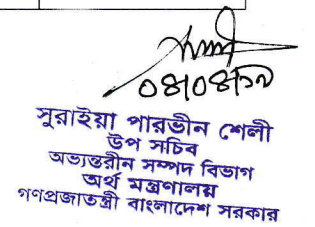 ০৪|০৪|১৯
সুরাইয়া পারভীন শেলী
উপ সচিব
অভ্যন্তরীন সম্পদ বিভাগ
অর্থ মন্ত্রণালয়
গণপ্রজাতন্ত্রী বাংলাদেশ সরকার